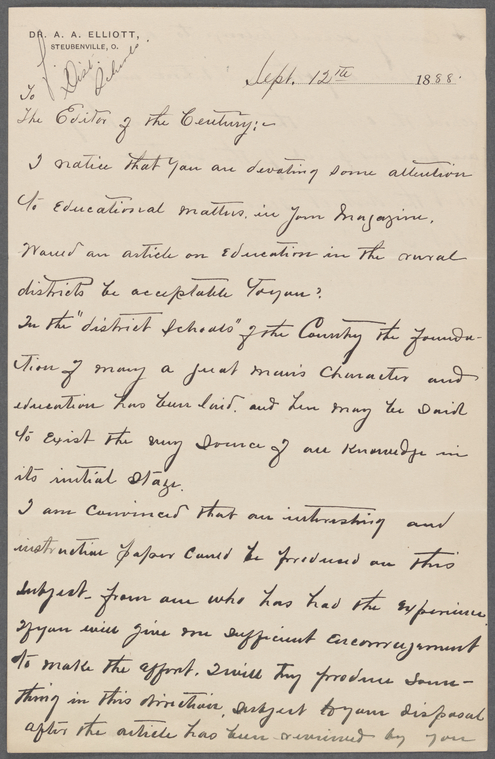 DR. A. A. ELLIOTT,
STEUBENVILLE, O.
Dist. Schools.
Sept. 12th 1888.
To
The Editor of the Century:-
I notice that you are devoting some attention
to Educational matters, in your Magazine.
Would an article on Education in the rural
districts be acceptable to you?
In the "district Schools" of the Country the founda-
tion of many a great man's Character and
education has been laid, and here may be said
to exist the very Source of all Knowledge in
its initial Stage.
I am Convinced that an interesting and
instructive paper could be produced on this
Subject - from one who has had the experience.
If you will give me Sufficient Encouragement
to make the effort, I will try produce Some-
thing in this direction, Subject to your disposal
after the article has been reviewed by you